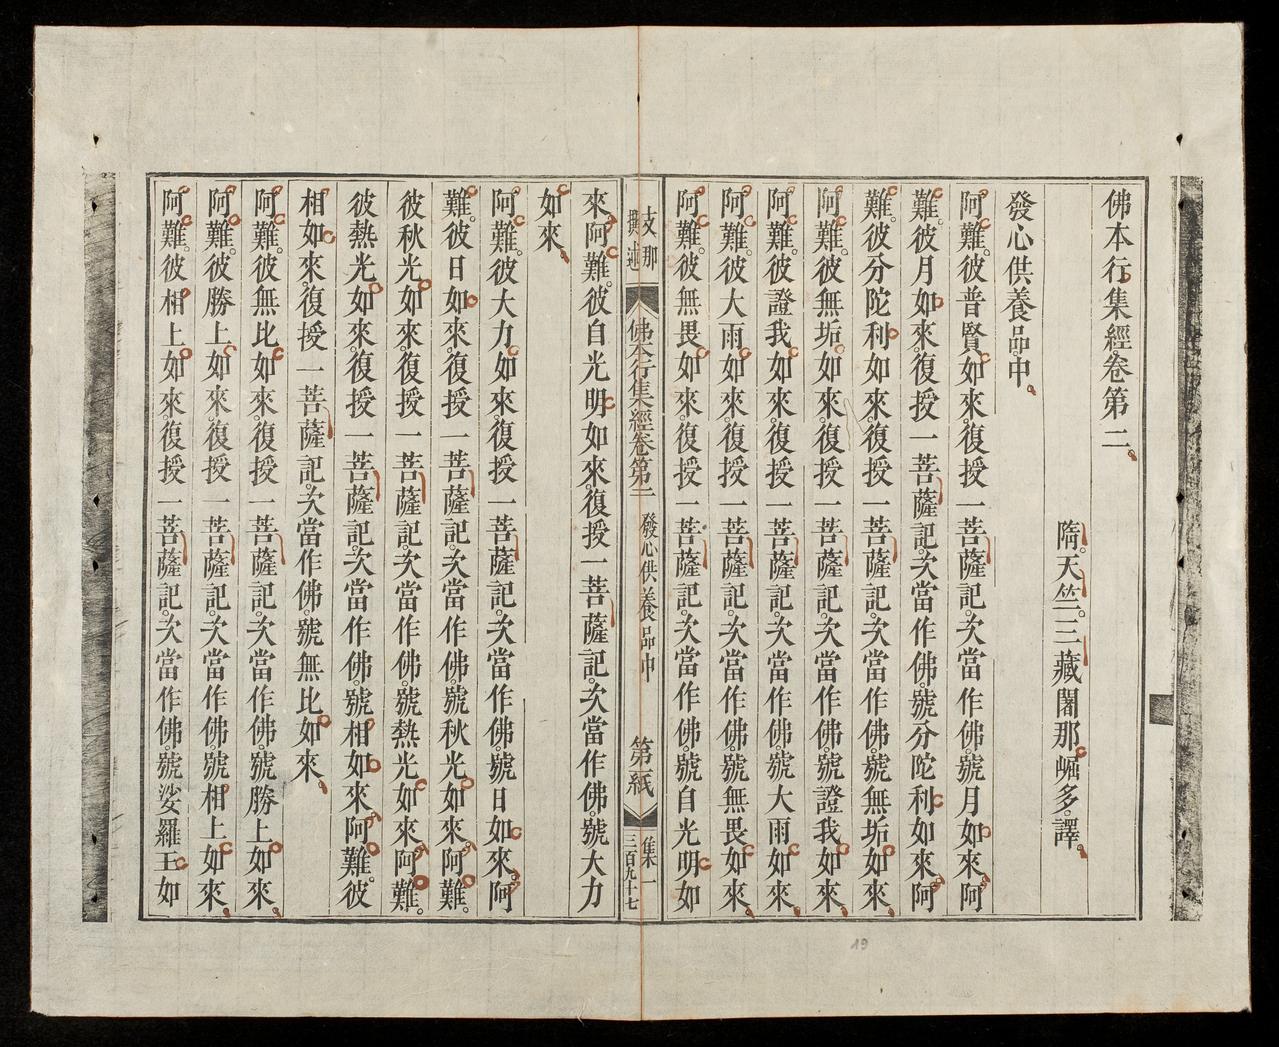 佛本行集經卷第二
隋。天竺。三藏闍那崛多。譯。
發心供養品。中
阿難。彼普賢如來。復授一菩薩記。次當作佛。號月如來。阿
難。彼月如來。復授一菩薩記。次當作佛。號分陀利如來。阿
難。彼分陀利如來。復授一菩薩記。次當作佛。號無垢如來。
阿難。彼無垢如來。復授一菩薩記。次當作佛。號證我如來。
阿難。彼證我如來。復授一菩薩記。次當作佛。號大雨如來。
阿難。彼大雨如來。復授一菩薩記。次當作佛。號無畏如來。
阿難。彼無畏如來。復授一菩薩記。次當作佛。號自光明如
支那
撰述
佛本行集經卷第二 發心供養品中 第一紙
集一
三百九十七
來。阿難。彼自光明如來。復授一菩薩記。次當作佛。號大力
如來。
阿難。彼大力如來。復授一菩薩記。次當作佛。號日如來。阿
難。彼日如來。復授一菩薩記。次當作佛。號秋光如來。阿難。
彼秋光如來。復授一菩薩記。次當作佛。號熱光如來。阿難。
彼熱光如來。復授一菩薩記。次當作佛。號相如來。阿難。彼
相如來。復授一菩薩記。次當作佛。號無比如來。
阿難。彼無比如來。復授一菩薩記。次當作佛。號勝上如來。
阿難。彼勝上如來。復授一菩薩記。次當作佛。號相上如來。
阿難。彼相上如來。復授一菩薩記。次當作佛。號娑羅王如
19